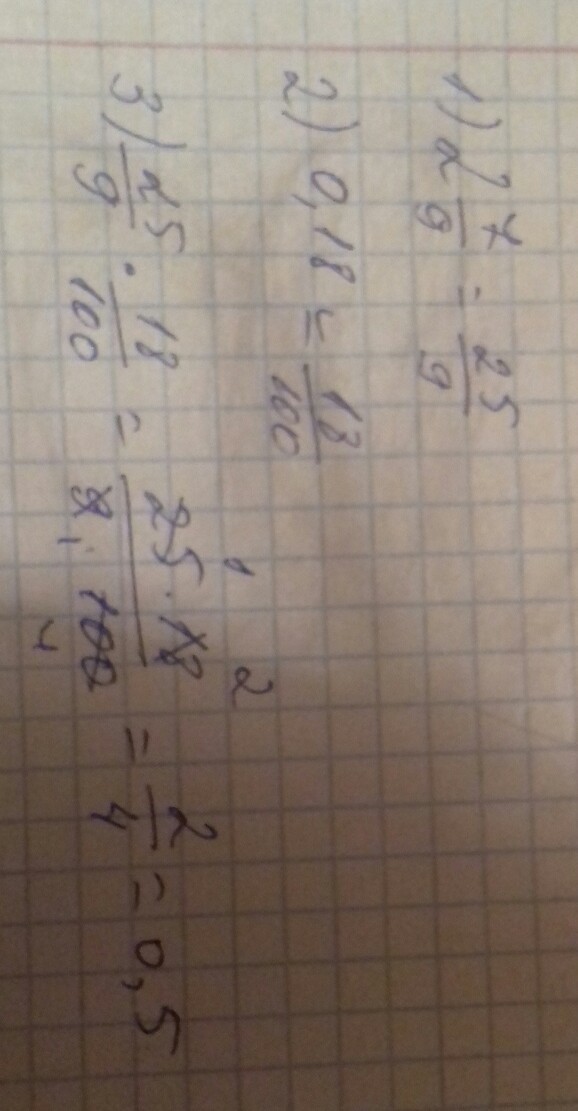 1) 2 7/9 = 25/9
2) 0,18 = 18/100
3) 25/9 · 18/100 = 25 · 18 / 9 · 100 = 2/4 = 0,5